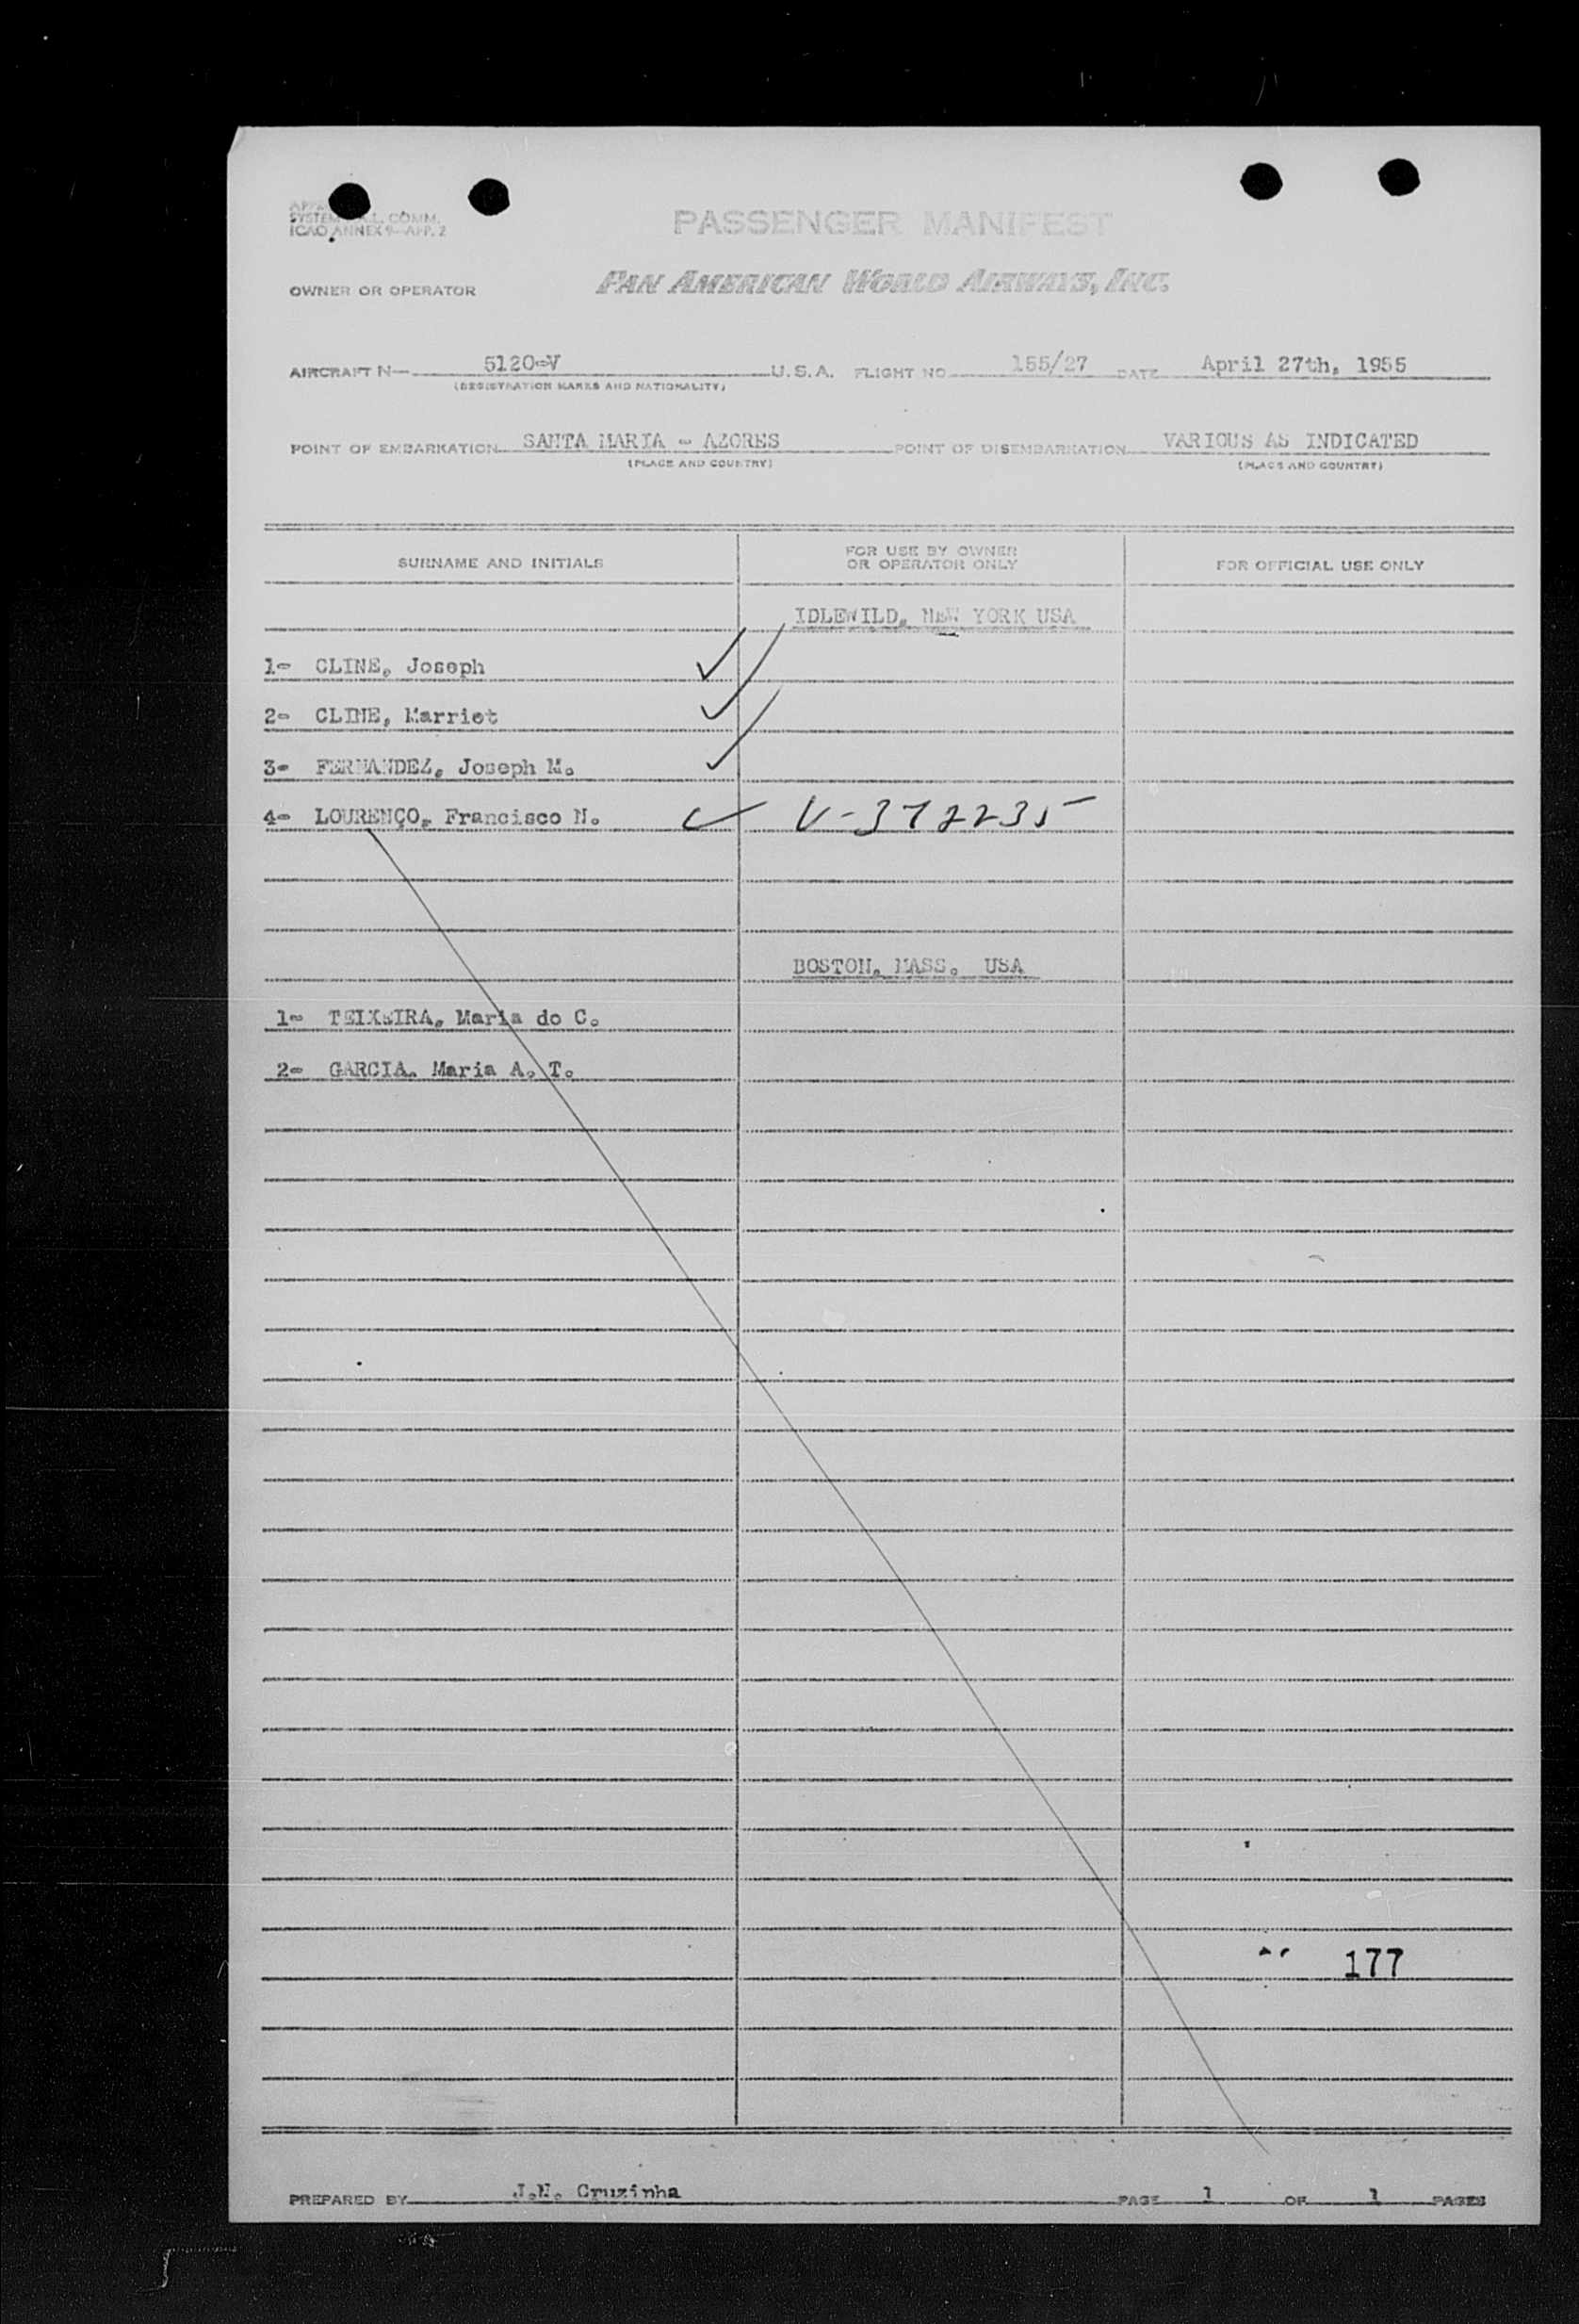 SYSTEM
COMM.
ICAO ANNEX 9—APP. 2
PASSENGER MANIFEST
OWNER OR OPERATOR PAN AMERICAN WORLD AIRWAYS, INC.
AIRCRAFT N— 5120-V U.S.A. FLIGHT NO 155/27 DATE April 27th, 1955
(REGISTRATION MARKS AND NATIONALITY)
POINT OF EMBARKATION SANTA MARIA - AZORES POINT OF DISEMBARKATION VARIOUS AS INDICATED
(PLACE AND COUNTRY) (PLACE AND COUNTRY)
SURNAME AND INITIALS FOR USE BY OWNER OR OPERATOR ONLY FOR OFFICIAL USE ONLY
IDLEWILD, NEW YORK USA
1- CLINE, Joseph
2- CLINE, Marriet
3- FERNANDEZ, Joseph M.
4- LOURENÇO, Francisco N. V-372235
BOSTON, MASS. USA
1- TEIXEIRA, Maria do C.
2- GARCIA. Maria A. T.
177
PREPARED BY J.N. Cruzinha PAGE 1 OF 1 PAGES